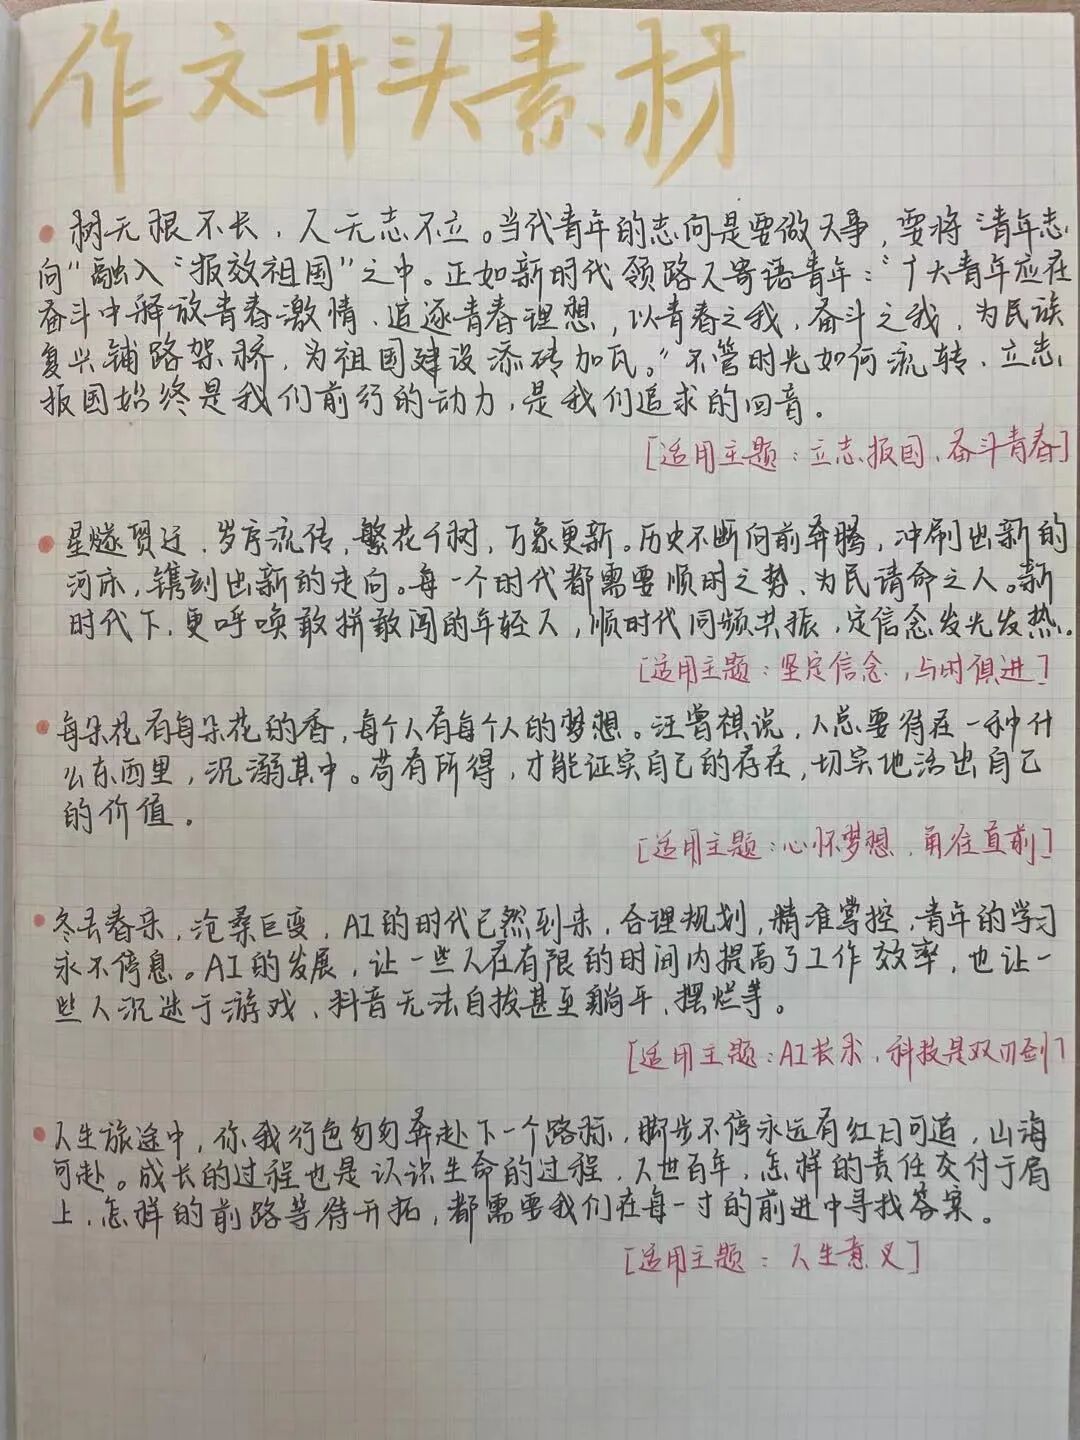 作文开头素材
树无根不长，人无志不立。当代青年的志向是要做大事，要将“青年志
向”融入“报效祖国”之中。正如新时代领路人寄语青年：“广大青年应在
奋斗中释放青春激情、追逐青春理想，以青春之我，奋斗之我，为民族
复兴铺路架桥，为祖国建设添砖加瓦。”不管时光如何流转，立志
报国始终是我们前行的动力，是我们追求的回音。
[适用主题：立志报国、奋斗青春]
星燧贸迁，岁序流传，繁花千树，万象更新。历史不断向前奔腾，冲刷出新的
河床，镌刻出新的走向。每一个时代都需要顺时之势、为民请命之人。新
时代下，更呼唤敢拼敢闯的年轻人，顺时代同频共振，定信念发光发热。
[适用主题：坚定信念，与时俱进]
每朵花有每朵花的香，每个人有每个人的梦想。汪曾祺说，人总要待在一种什
么东西里，沉溺其中。苟有所得，才能证实自己的存在，切实地活出自己
的价值。
[适用主题：心怀梦想，勇往直前]
冬去春来，沧桑巨变，AI的时代已然到来，合理规划，精准掌控，青年的学习
永不停息。AI的发展，让一些人在有限的时间内提高了工作效率，也让一
些人沉迷于游戏、抖音无法自拔甚至躺平、摆烂等。
[适用主题：AI长术，科技是双刃剑]
人生旅途中，你我行色匆匆奔赴下一个路标，脚步不停永远有红日可追，山海
可赴。成长的过程也是认识生命的过程，人世百年，怎样的责任交付于肩
上，怎样的前路等待开拓，都需要我们在每一寸的前进中寻找答案。
[适用主题：人生意义]